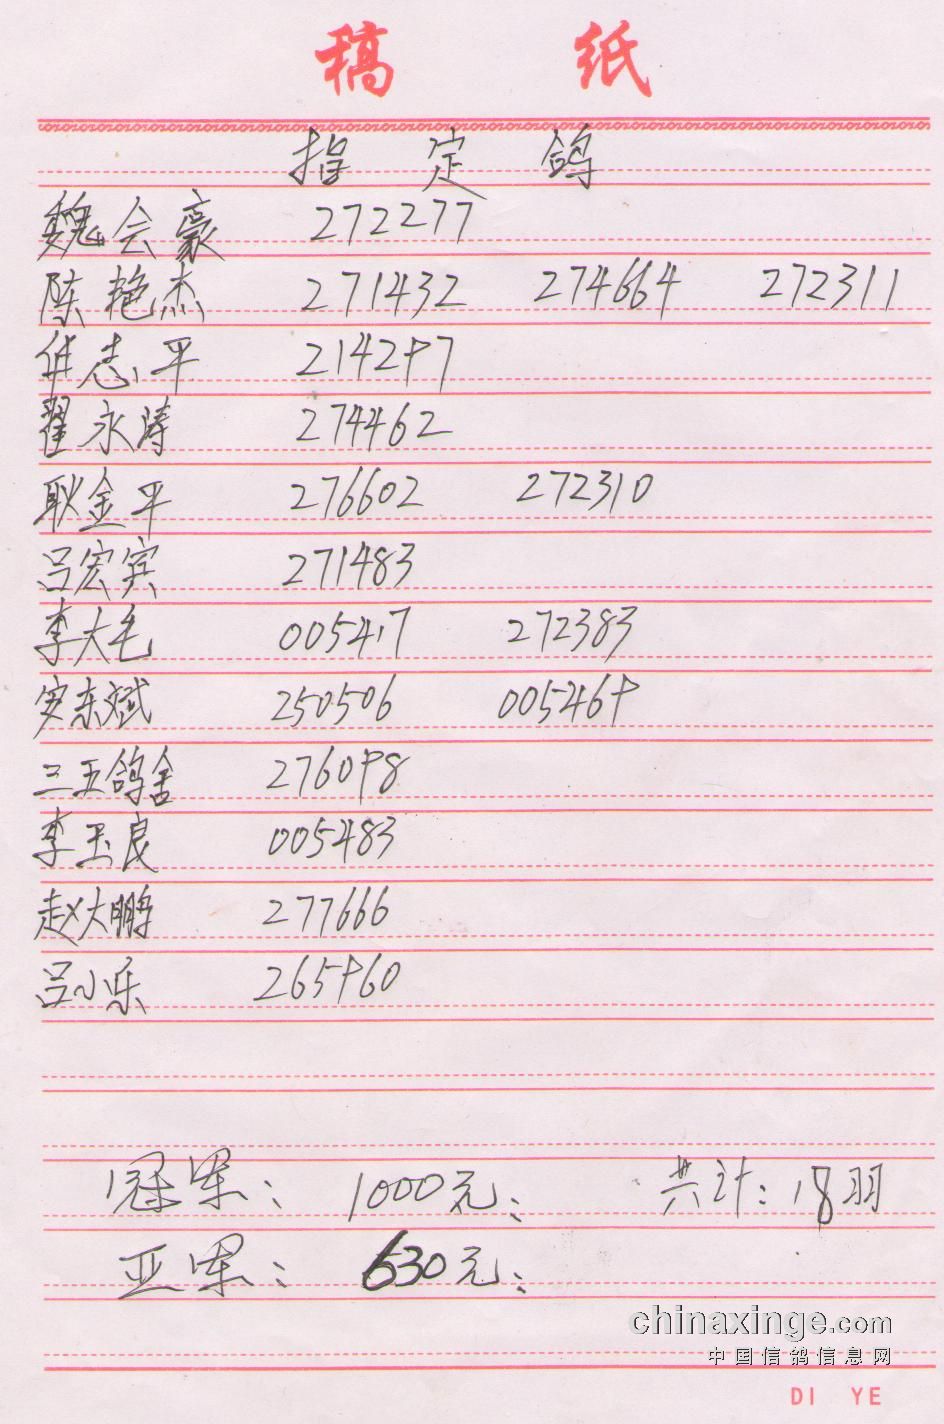 稿 纸
指 定 鸽
魏会豪 272277
陈艳杰 271432 274664 272311
任志平 214297
翟永涛 274462
耿金平 276602 272310
吕宏宾 271483
李大毛 005417 272383
安东斌 250506 005469
三五鸽舍 276098
李玉良 005483
赵大鹏 277666
吕小乐 265960
冠军: 1000元; 共计: 18羽
亚军: 630元;
chinaxinge.com
中国信鸽信息网
DI YE